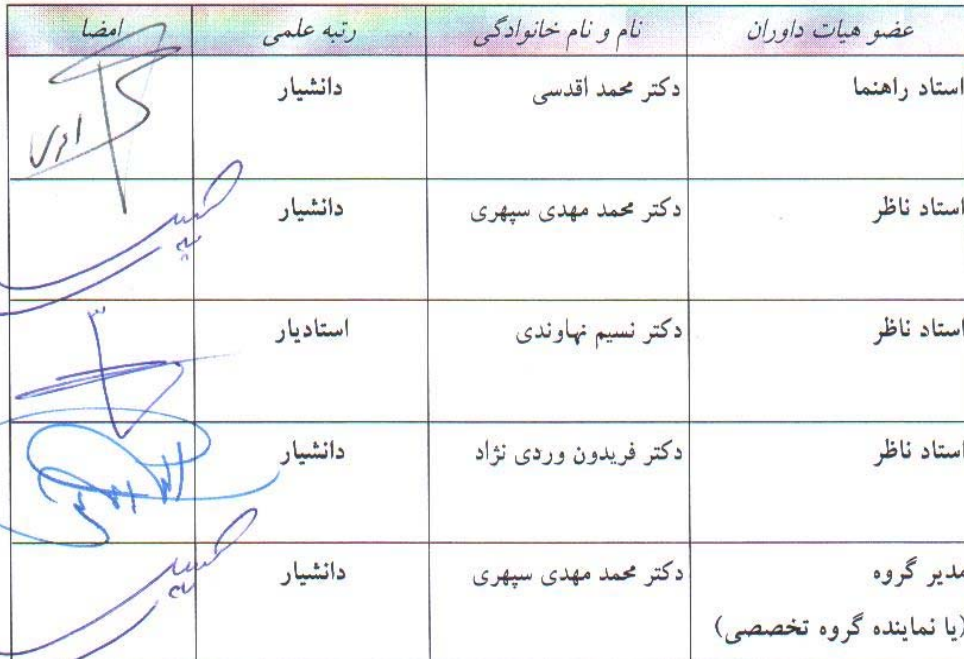 عضو هیات داوران نام و نام خانوادگی رتبه علمی امضا
استاد راهنما دکتر محمد اقدسی دانشیار
استاد ناظر دکتر محمد مهدی سپهری دانشیار
استاد ناظر دکتر نسیم نهاوندی استادیار
استاد ناظر دکتر فریدون وردی نژاد دانشیار
مدیر گروه دکتر محمد مهدی سپهری دانشیار
(یا نماینده گروه تخصصی)